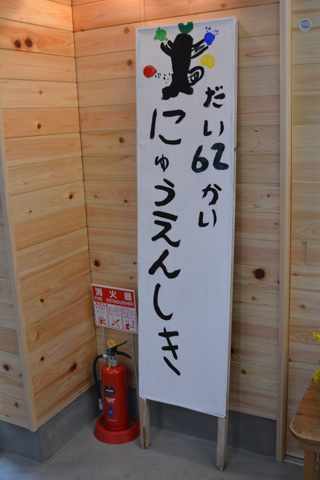 だい62かい
にゅうえんしき
消火器
FIRE EXTINGUISHER